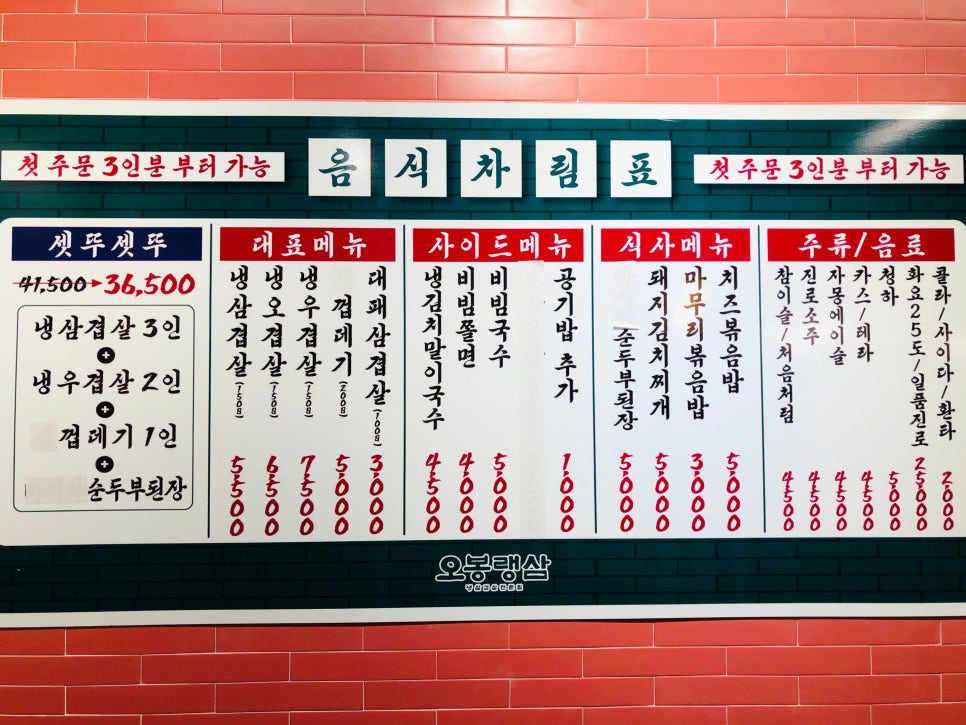 첫 주문 3인분 부터 가능
음식차림표
첫 주문 3인분 부터 가능
셋뚜셋뚜
41,500 → 36,500
냉삼겹살 3인
+
냉우겹살 2인
+
껍데기 1인
+
순두부된장
대표메뉴
냉삼겹살(150g) 5,500
냉오겹살(150g) 6,500
냉우겹살(150g) 7,500
껍데기(200g) 5,000
대패삼겹살(100g) 3,000
사이드메뉴
냉김치말이국수 4,500
비빔쫄면 4,000
비빔국수 5,000
공기밥 추가 1,000
식사메뉴
순두부된장 5,000
돼지김치찌개 5,000
마무리볶음밥 3,000
치즈볶음밥 5,000
주류/음료
참이슬/처음처럼 4,500
진로소주 4,500
자몽에이슬 4,500
카스/테라 4,500
청하 5,000
화요25도/일품진로 25,000
콜라/사이다/환타 2,000
오봉랭삼